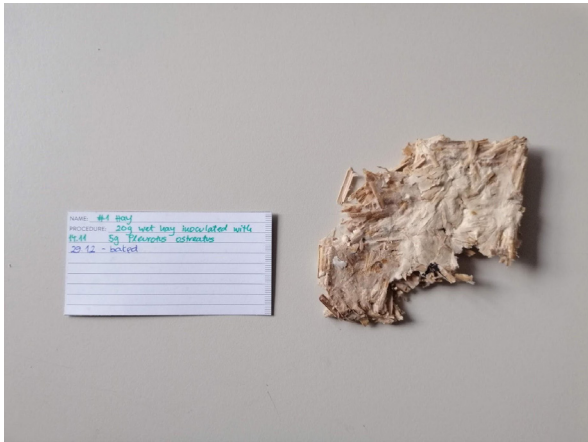 NAME: #1 Hay
PROCEDURE: 20g wet hay inoculated with
5g Pleurotus ostreatus
29.12 - baked